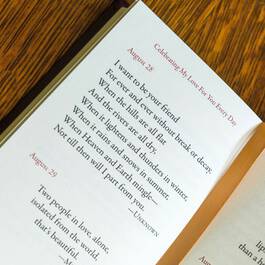 Celebrating My Love For You Every Day
August 28
I want to be your friend
For ever and ever without break or decay.
When the hills are all flat
And the rivers are all dry,
When it lightens and thunders in winter,
When it rains and snows in summer,
When Heaven and Earth mingle—
Not till then will I part from you.
—Unknown
August 29
Two people in love, alone,
isolated from the world,
that's beautiful.